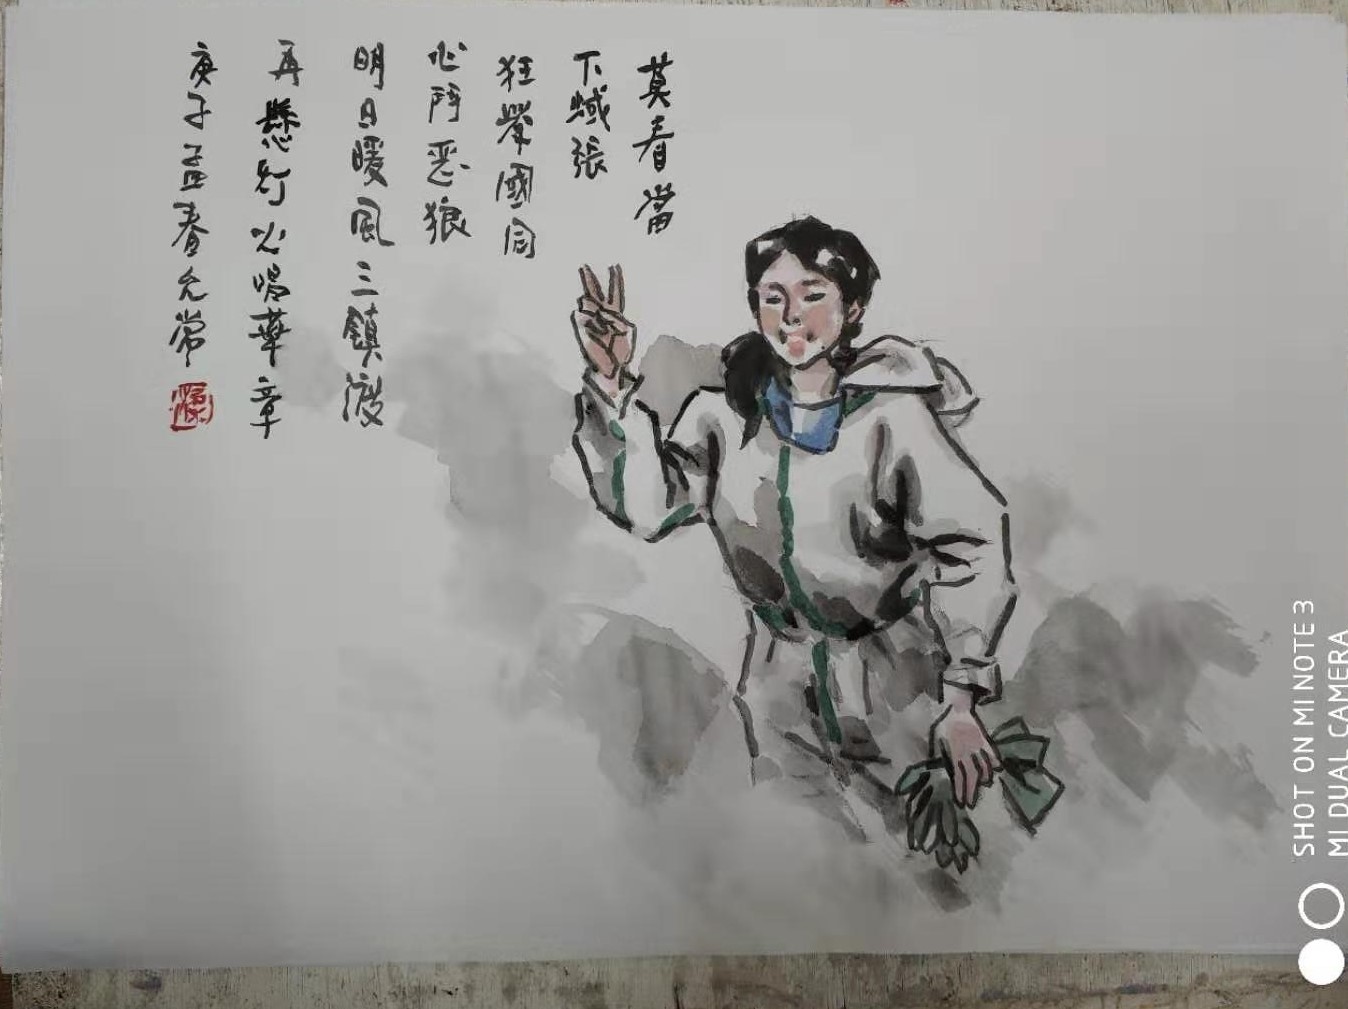 莫看當
下蜮張
狂舉國同
心鬥恶狼
明日暖風三鎮渡
再懸灯火唱華章
庚子孟春允常
SHOT ON MI NOTE 3
MI DUAL CAMERA